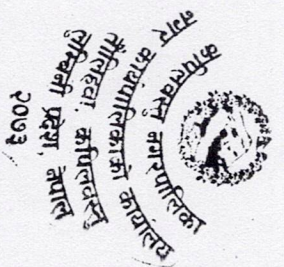 कपिलवस्तु नगरपालिका
नगर कार्यपालिकाको कार्यालय
तौलिहवा, कपिलवस्तु
लुम्बिनी प्रदेश, नेपाल
२०७३